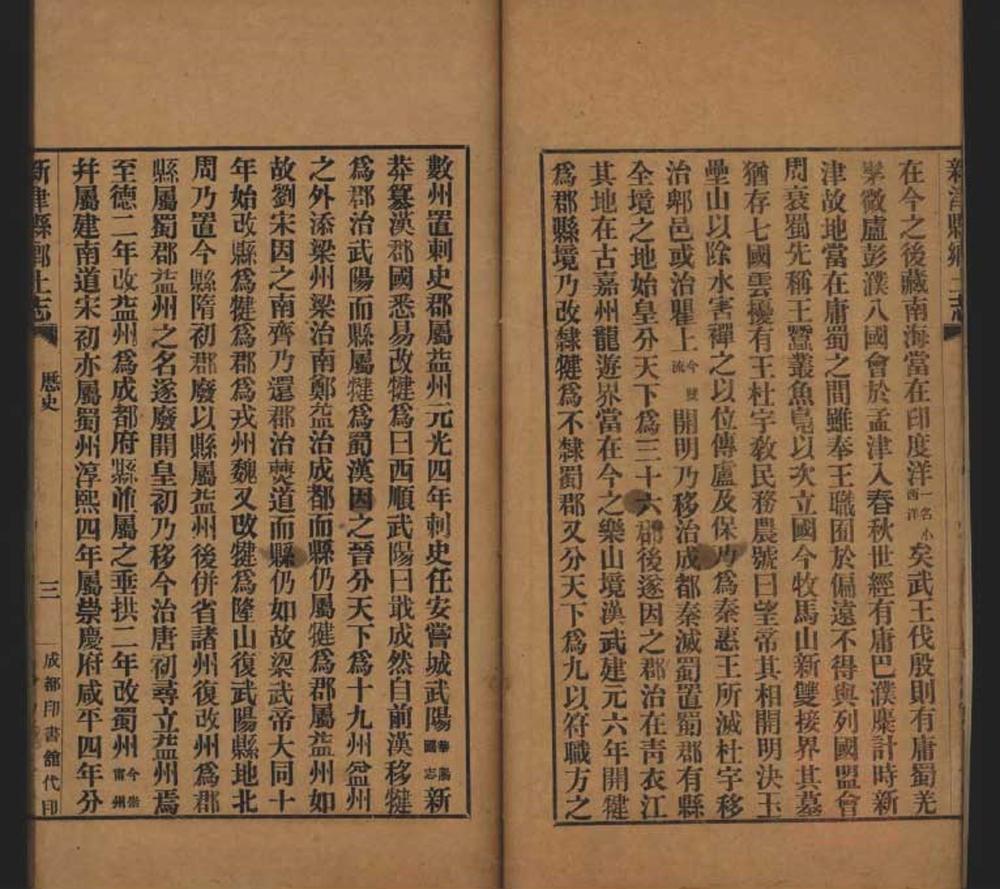 新津縣鄉土志
在今之後藏南海當在印度洋一名小西洋矣武王伐殷則有庸蜀羌
髳微盧彭濮八國會於孟津入春秋世經有庸巴濮麇計時新
津故地當在庸蜀之間雖奉王職囿於偏遠不得與列國盟會
周衰蜀先稱王蠶叢魚鳧以次立國今牧馬山新雙接界其墓
猶存七國雲擾有王杜宇教民務農號曰望帝其相開明決玉
壘山以除水害禪之以位傳盧及保乃為秦惠王所滅杜宇移
治郫邑或治瞿上今雙流開明乃移治成都秦滅蜀置蜀郡有縣
全境之地始皇分天下為三十六郡後遂因之郡治在青衣江
其地在古嘉州龍遊界當在今之樂山境漢武建元六年開犍
為郡縣境乃改隸犍為不隸蜀郡又分天下為九以符職方之
數州置刺史郡屬益州元光四年刺史任安嘗城武陽華陽國志新
莽篡漢郡國悉易改犍為曰西順武陽曰戢成然自前漢移犍
為郡治武陽而縣屬犍為蜀漢因之晉分天下為十九州益州
之外添梁州梁治南鄭益治成都而縣仍屬犍為郡屬益州如
故劉宋因之南齊乃還郡治僰道而縣仍如故梁武帝大同十
年始改縣為犍為郡為戎州魏又改犍為隆山復武陽縣地北
周乃置今縣隋初郡廢以縣屬益州後併省諸州復改州為郡
縣屬蜀郡益州之名遂廢開皇初乃移今治唐初尋立益州焉
至德二年改益州為成都府縣並屬之垂拱二年改蜀州今崇甯州
并屬建南道宋初亦屬蜀州淳熙四年屬崇慶府咸平四年分
新津縣鄉土志
歷史
三
成都印書館代印